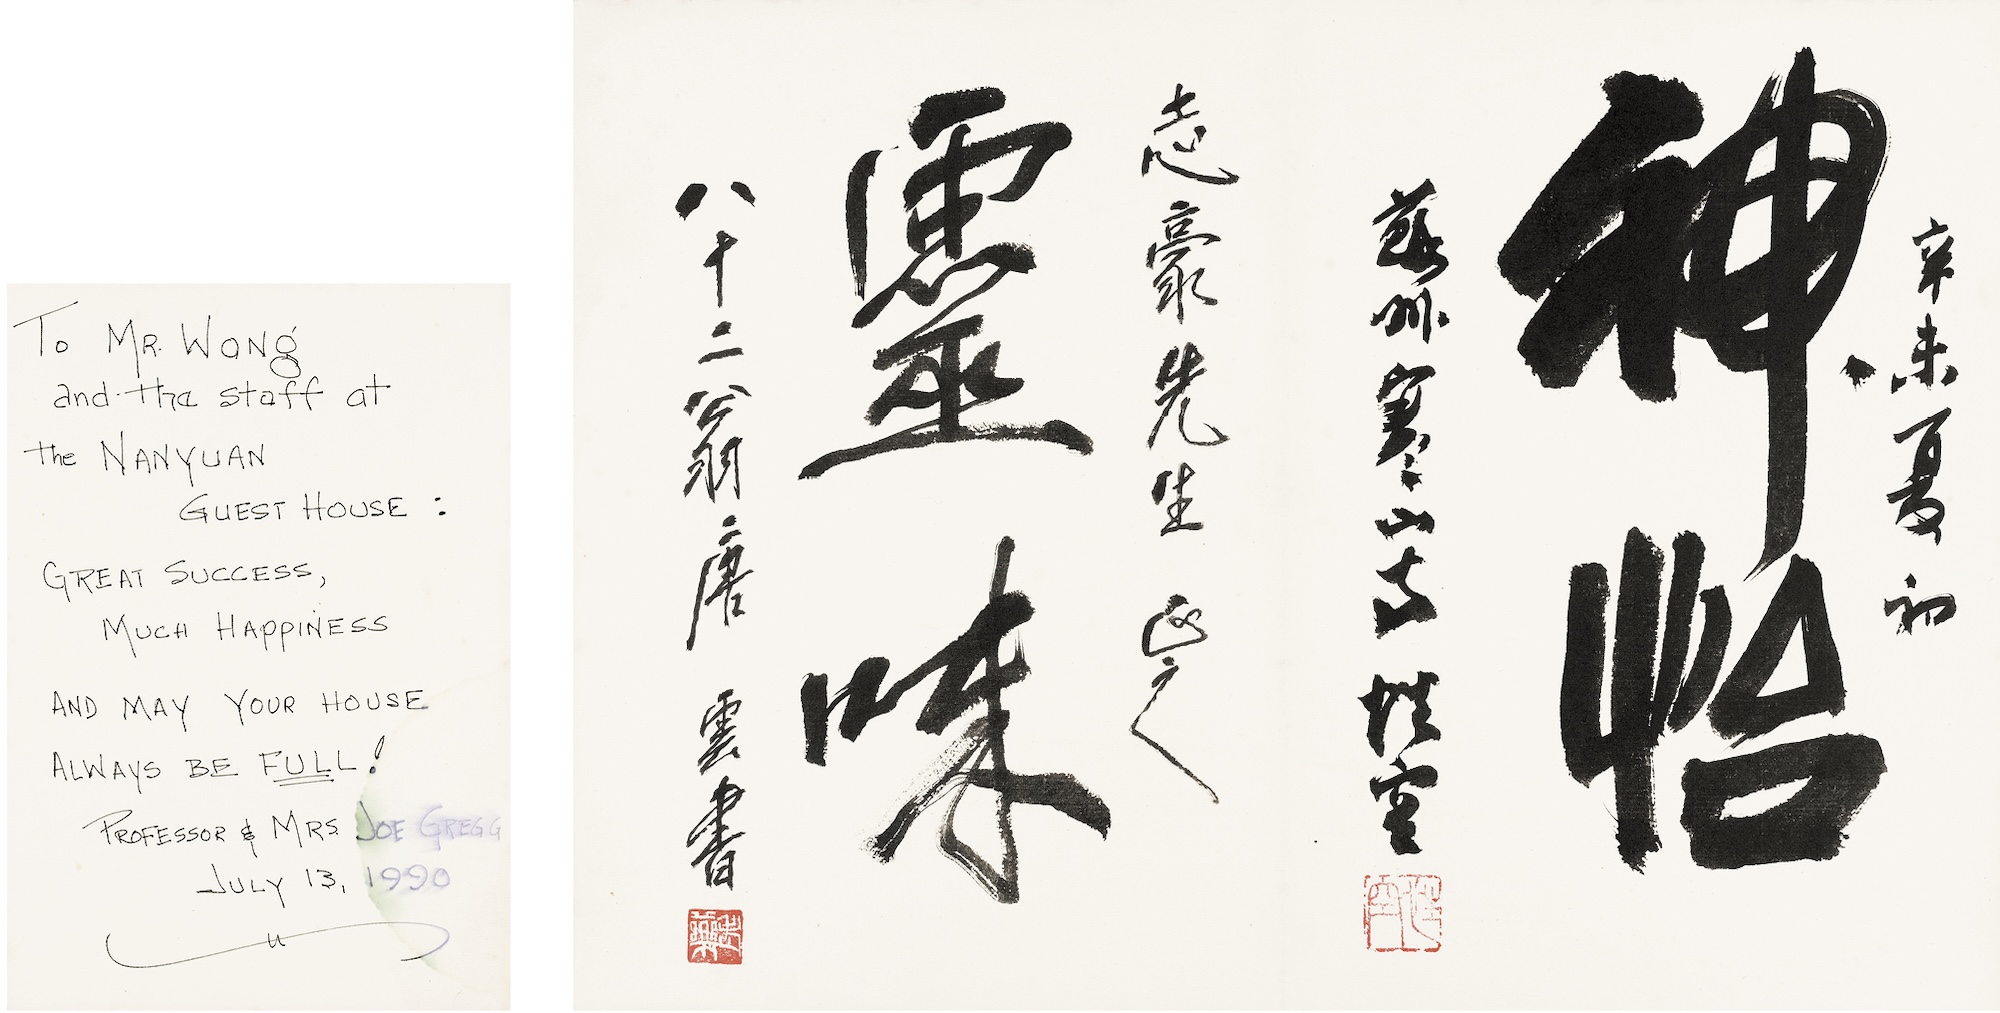 To Mr. Wong
and the staff at
the Nanyuan
Guest House :
Great Success,
Much Happiness
And may your house
always be full!
Professor & Mrs Joe Gregg
July 13, 1990
辛未夏初
神怡
蘇州寒山寺性空
志豪先生正之
靈味
八十二翁唐雲書